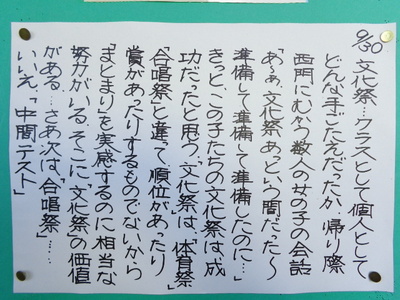 9/30 文化祭…クラスとして個人として
どんな手ごたえだったか。帰り際
西門にむかう数人の女の子の会話
「あ〜あ、文化祭あっという間だった〜
準備して準備して準備したのに…」
きっと、この子たちの文化祭は成
功だったと思う。「文化祭」は、「体育祭」
「合唱祭」と違って、順位があったり
賞があったりするものでないから
「まとまり」を実感するのに相当な
努力がいる。そこに「文化祭」の価値
がある…。さあ次は、「合唱祭」……
いいえ、「中間テスト」